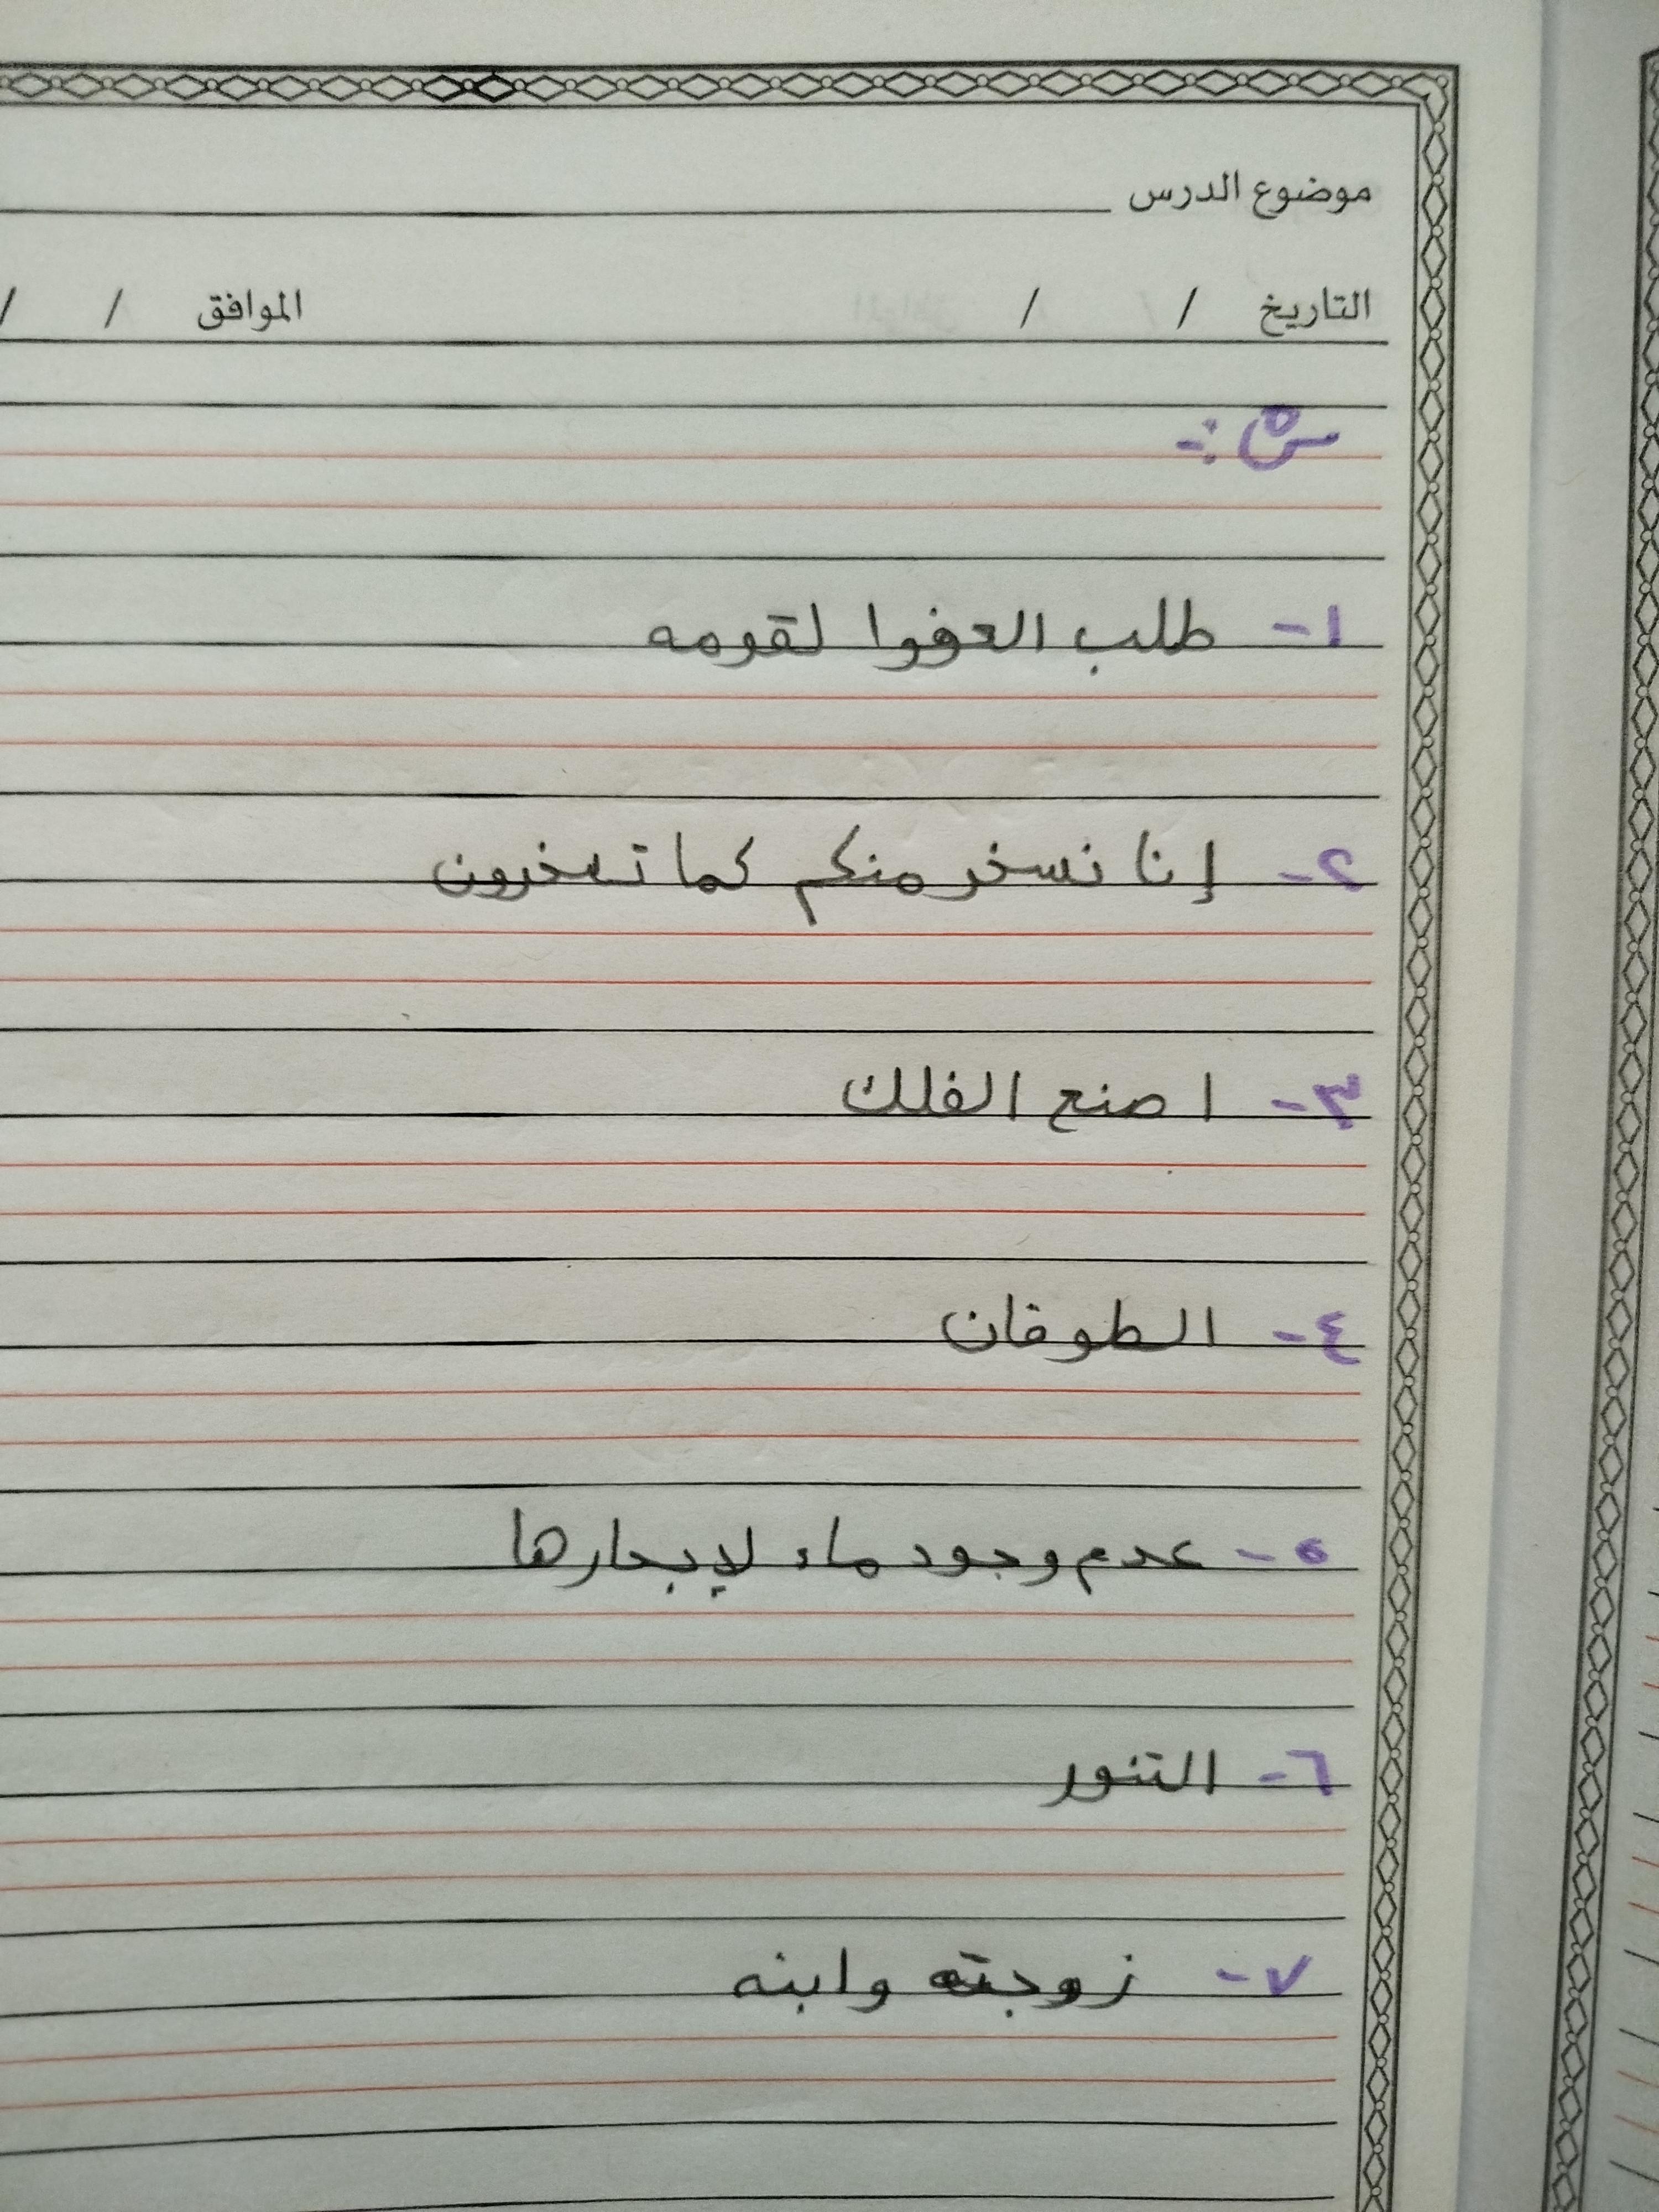 موضوع الدرس
التاريخ / / الموافق / /
س٥ :-
١- طلب العفوا لقومه
٢- إنا نسخر منكم كما تسخرون
٣- اصنع الفلك
٤- الطوفان
٥- عدم وجود ماء لإبحارها
٦- التنور
٧- زوجته وابنه